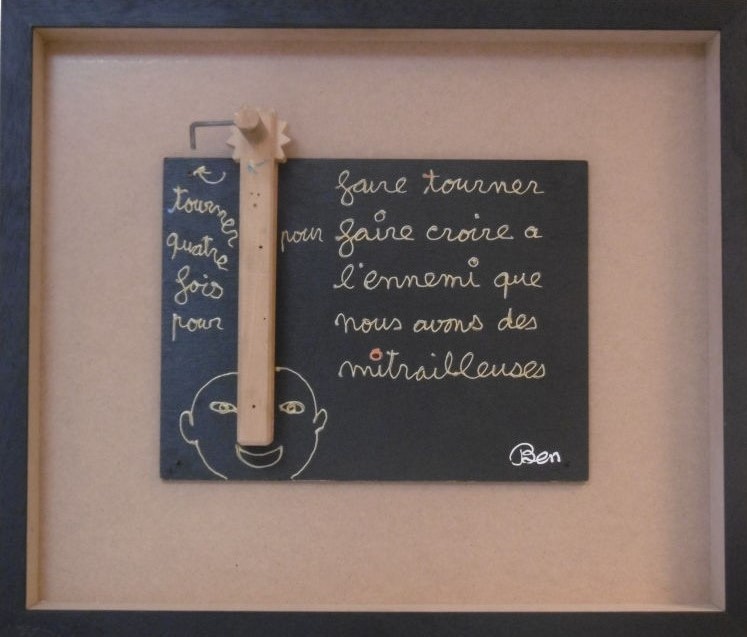 tourner
quatre
fois
pour
pour
faire tourner
faire croire a
l'ennemi que
nous avons des
mitrailleuses
Ben